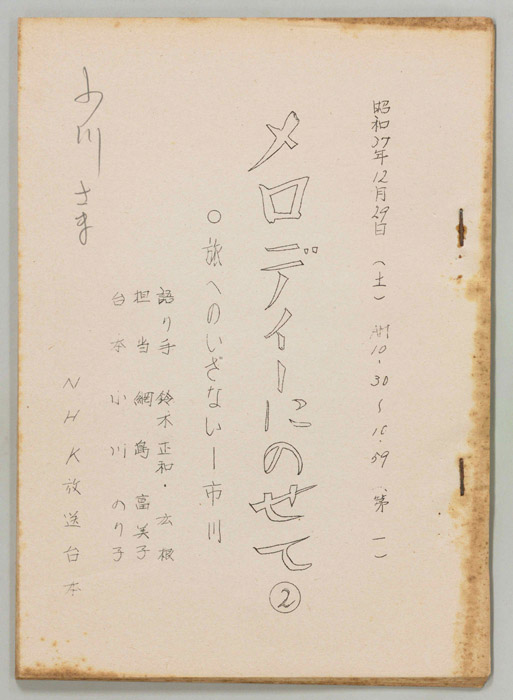 昭和37年12月29日(土) AM10.30～10.59(第一)
メロディーにのせて②
○旅へのいざない―市川
語り手 鈴木正和・玄根
担当 網島富美子
台本 小川のり子
NHK放送台本
小川さま